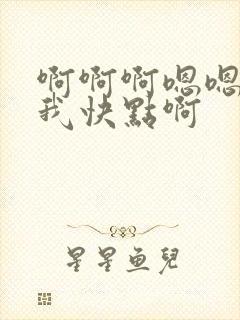 啊啊啊嗯嗯
我快點啊
星星鱼兒